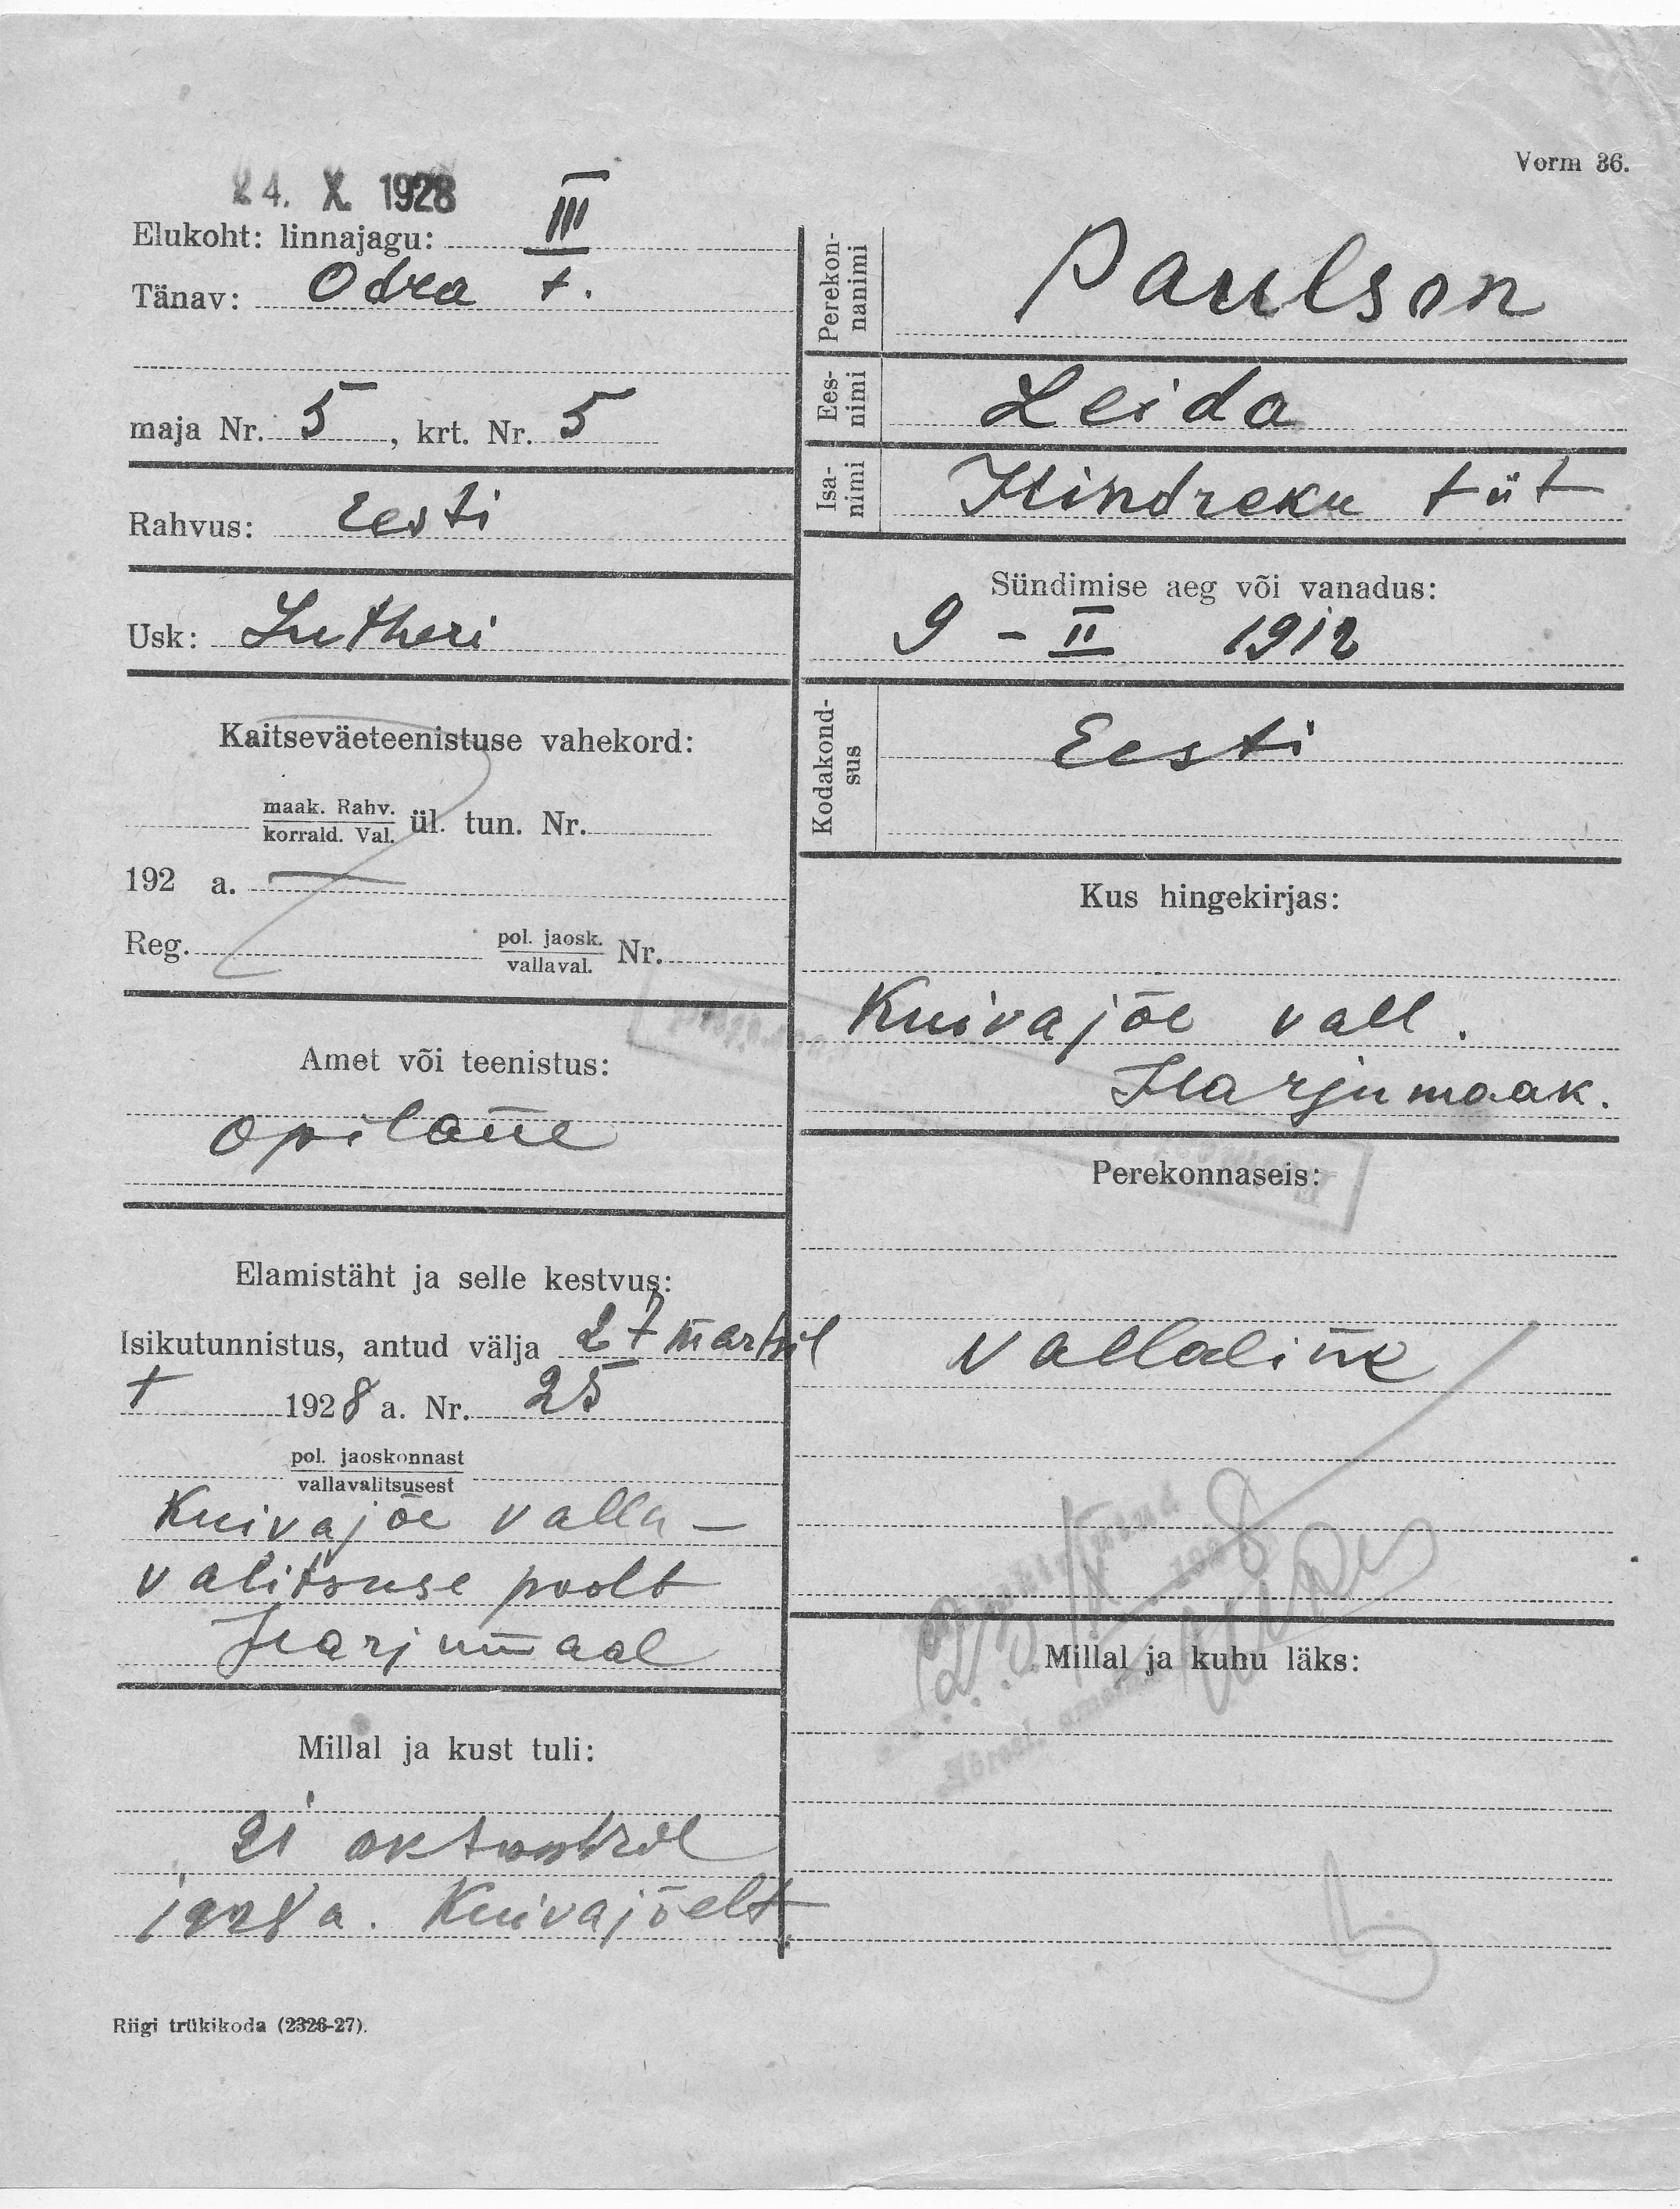 Vorm 36.
24. X. 1928
Elukoht: linnajagu: III
Tänav: Odra t.
maja Nr. 5, krt. Nr. 5
Rahvus: Eesti
Usk: Lutheri
Kaitseväeteenistuse vahekord:
maak. Rahv.
korrald. Val. ül. tun. Nr.
192 a.
Reg. pol. jaosk.
vallaval. Nr.
Amet või teenistus:
opilane
Elamistäht ja selle kestvus:
Isikutunnistus, antud välja 27 martsil
1928 a. Nr. 25
pol. jaoskonnast
vallavalitsusest
Kuivajõe valla-
valitsuse poolt
Harjumaal
Millal ja kust tuli:
21 oktoobril
1928 a. Kuivajõelt
Riigi trükikoda (2326-27).
Perekon-
nanimi
Paulson
Ees-
nimi
Leida
Isa-
nimi
Hindreku tüt
Sündimise aeg või vanadus:
9 - II 1912
Kodakond-
sus
Eesti
Kus hingekirjas:
Kuivajõe vall.
Harjumaak.
Perekonnaseis:
Vallaline
Millal ja kuhu läks: